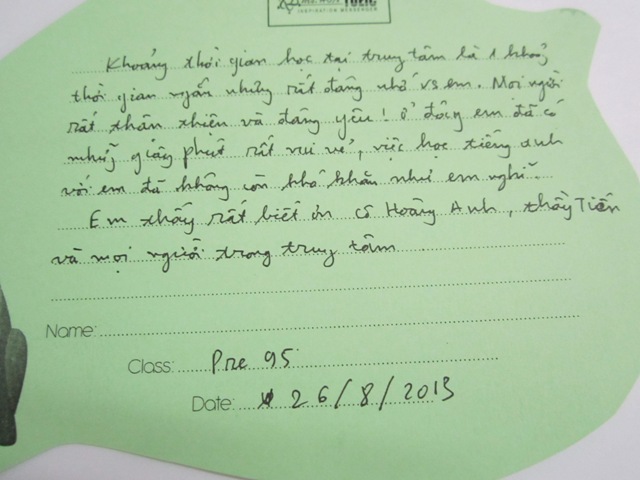 TOEIC
INSPIRATION MESSENGER
Khoảng thời gian học tại trung tâm là 1 khoảng
thời gian ngắn nhưng rất đáng nhớ vs em. Mọi người
rất thân thiện và đáng yêu! Ở đây em đã có
những giây phút rất vui vẻ, việc học tiếng Anh
với em đã không còn khó khăn như em nghĩ.
Em thấy rất biết ơn cô Hoàng Anh, thầy Tiến
và mọi người trong trung tâm
Name:
Class: Pre 95
Date: 26/8/2013